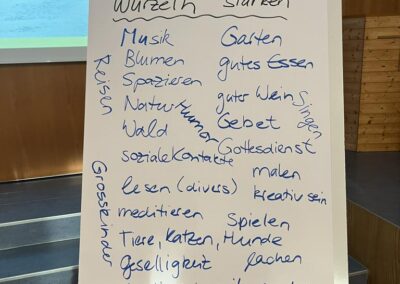 Wurzeln stärken
Musik
Blumen
Spazieren
Natur
Wald
soziale Kontakte
lesen (divers)
meditieren
Tiere, Katzen, Hunde
Geselligkeit
Reisen
Grosskinder
Humor
Garten
gutes Essen
guter Wein
Singen
Gebet
Gottesdienst
malen
kreativ sein
Spielen
lachen